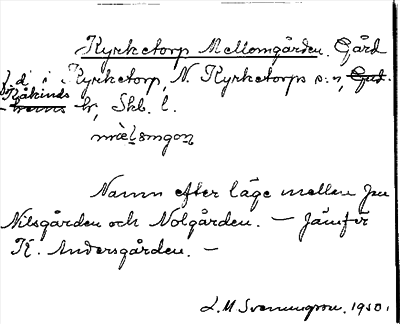 Kyrketorp Mellomgården. Gård
i Kyrketorp, N. Kyrketorps s:n, Gud-
Kåkinds
hems hr, Skb. l.
mælsmgon
Namn efter läge mellan
Nilsgården och Nolgården. – Jämför
K. Andersgården. –
L. M. Svenungson. 1930.